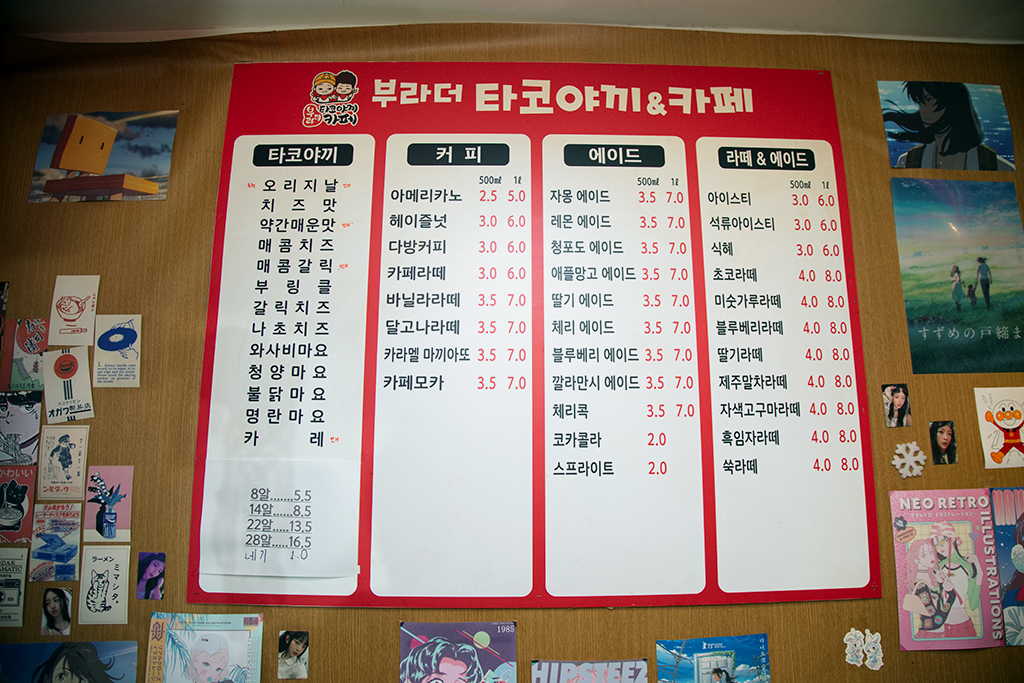 부라더 타코야끼&카페
부라더
타코야끼
카페
타코야끼
오리지날
치즈맛
약간매운맛
매콤치즈
매콤갈릭
부링클
갈릭치즈
나초치즈
와사비마요
청양마요
불닭마요
명란마요
카레
8알......5.5
14알......8.5
22알......13.5
28알......16.5
네기 1.0
커피
500㎖ 1ℓ
아메리카노 2.5 5.0
헤이즐넛 3.0 6.0
다방커피 3.0 6.0
카페라떼 3.0 6.0
바닐라라떼 3.5 7.0
달고나라떼 3.5 7.0
카라멜 마끼아또 3.5 7.0
카페모카 3.5 7.0
에이드
500㎖ 1ℓ
자몽 에이드 3.5 7.0
레몬 에이드 3.5 7.0
청포도 에이드 3.5 7.0
애플망고 에이드 3.5 7.0
딸기 에이드 3.5 7.0
체리 에이드 3.5 7.0
블루베리 에이드 3.5 7.0
깔라만시 에이드 3.5 7.0
체리콕 3.5 7.0
코카콜라 2.0
스프라이트 2.0
라떼 & 에이드
500㎖ 1ℓ
아이스티 3.0 6.0
석류아이스티 3.0 6.0
식혜 3.0 6.0
초코라떼 4.0 8.0
미숫가루라떼 4.0 8.0
블루베리라떼 4.0 8.0
딸기라떼 4.0 8.0
제주말차라떼 4.0 8.0
자색고구마라떼 4.0 8.0
흑임자라떼 4.0 8.0
쑥라떼 4.0 8.0
すずめの戸締ま
オガワ製菓店
かわいい
ラーメン
ミマシタ。
NEO RETRO
ILLUSTRATIONS
1985
HIPSTEEZ